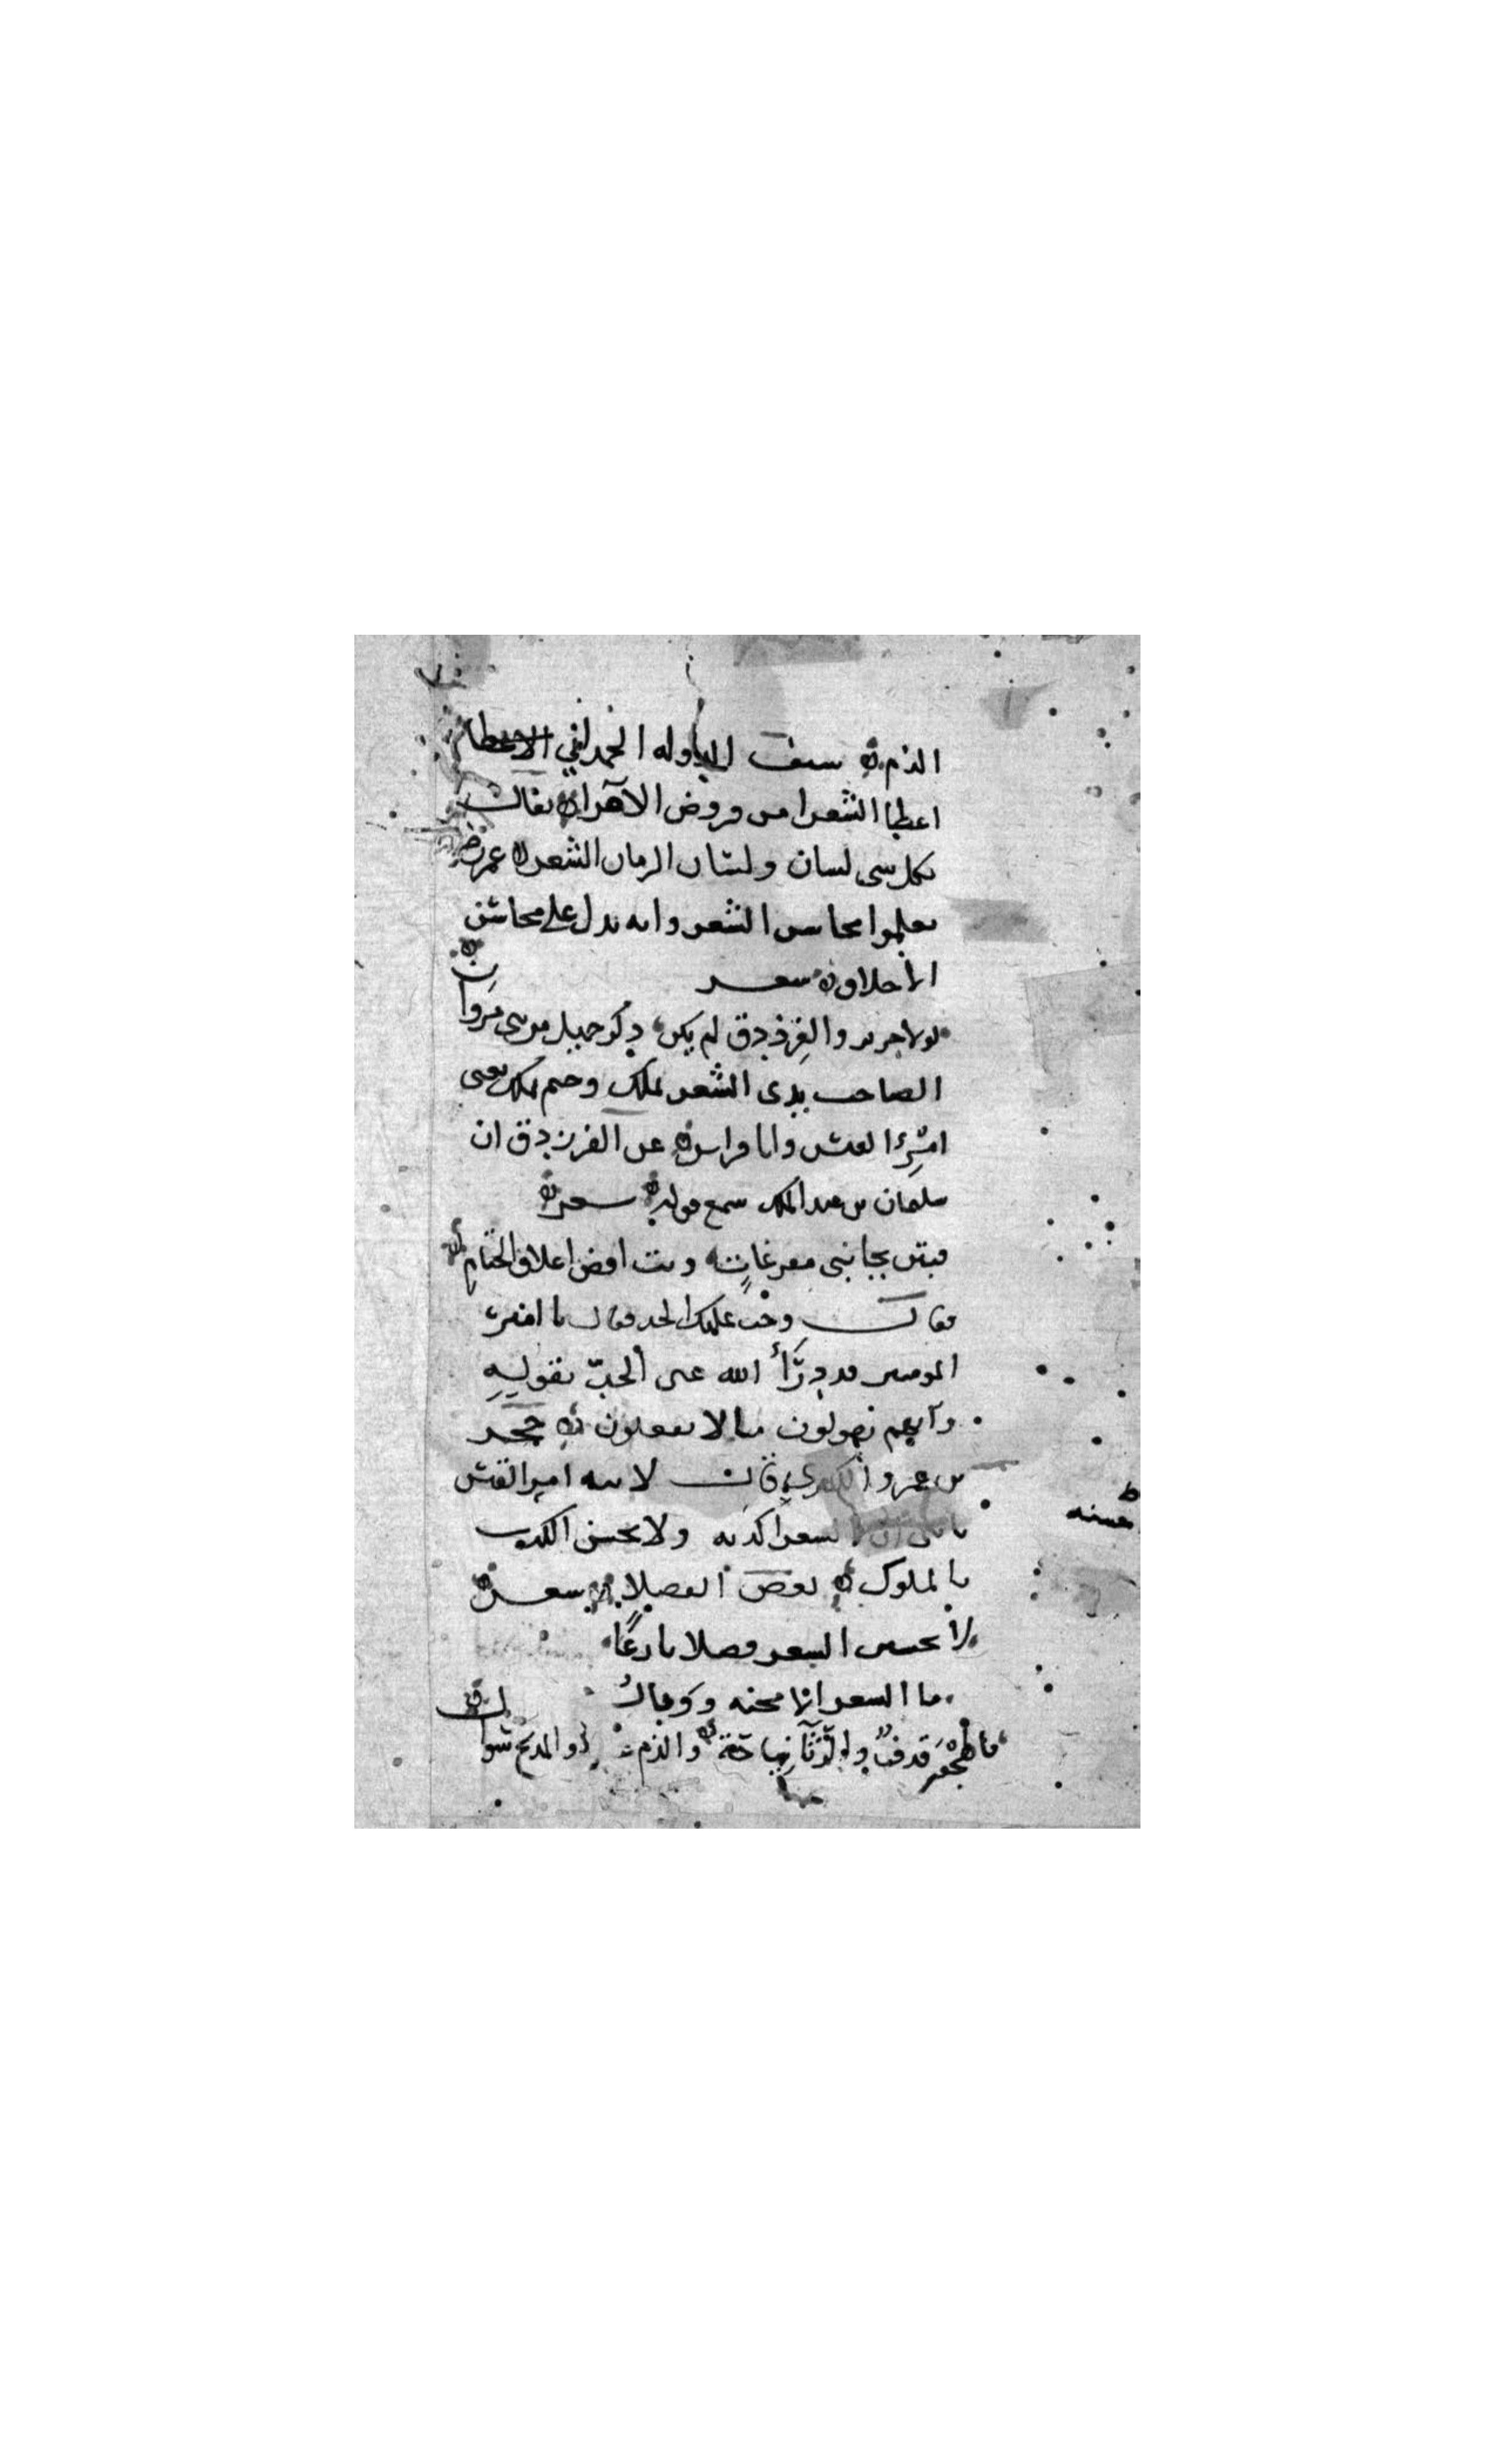 الذم ه سيف الدوله الحمداني
اعطا الشعرا من فروض الامرا ه يقال
لكل شى لسان ولسان الزمان الشعر ه عمر رض
تعلموا محاسن الشعر فانه يدل على محاسن
الاخلاق ه شعر
لولا جرير والفرزدق لم يكن ذكر جميل من بنى مروان
الصاحب بدى الشعر بملك وختم بملك يعنى
امرئ القيس وابا فراس ه عن الفرزدق ان
سليمان بن عبد الملك سمع قوله ه شعر ه
فبتن بجانبى مصرعات وبت افض اغلاق الختام
فقال وجب عليك الحد فقال يا امير
المومنين قد درأ الله عنى الحد بقوله
وانهم يقولون ما لا يفعلون ه حجر
بن عمرو الكندي قال لابنه امير القيس
يا بنى ان الشعر اكذبه ولا يحسن الكذب
حسنه
بالملوك ه بعض الفضلا ه شعر ه
لا تحسبن الشعر فضلا بارعا
ما الشعر الا محنه وخبال
فالهجو قذف والرثا نياحة والذم والمدح سوال